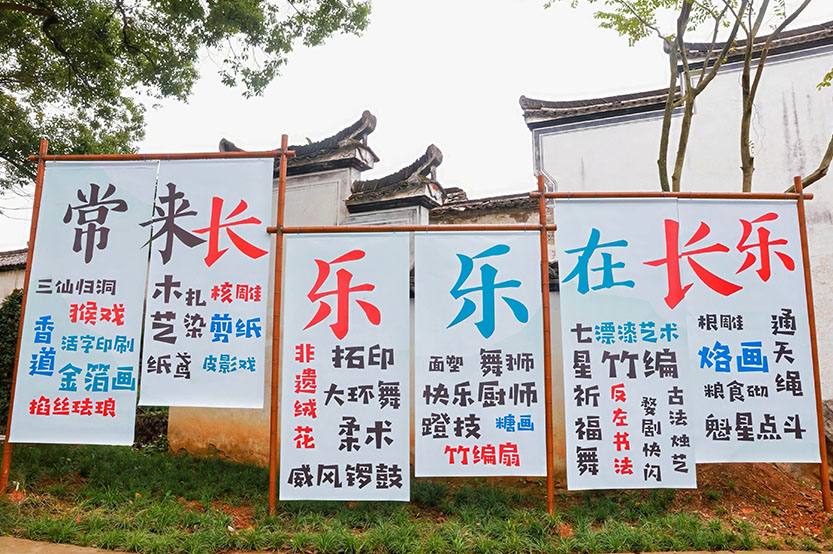 常来长乐 乐在长乐
三仙归洞
猴戏
香道
活字印刷
金箔画
掐丝珐琅
木扎
核雕
艺染
剪纸
纸鸢
皮影戏
非遗绒花
拓印
大环舞
柔术
威风锣鼓
面塑
舞狮
快乐厨师
蹬技
糖画
竹编扇
七星祈福舞
漂漆艺术
竹编
反左书法
婺剧快闪
古法烛艺
根雕
通天绳
烙画
粮食砌
魁星点斗